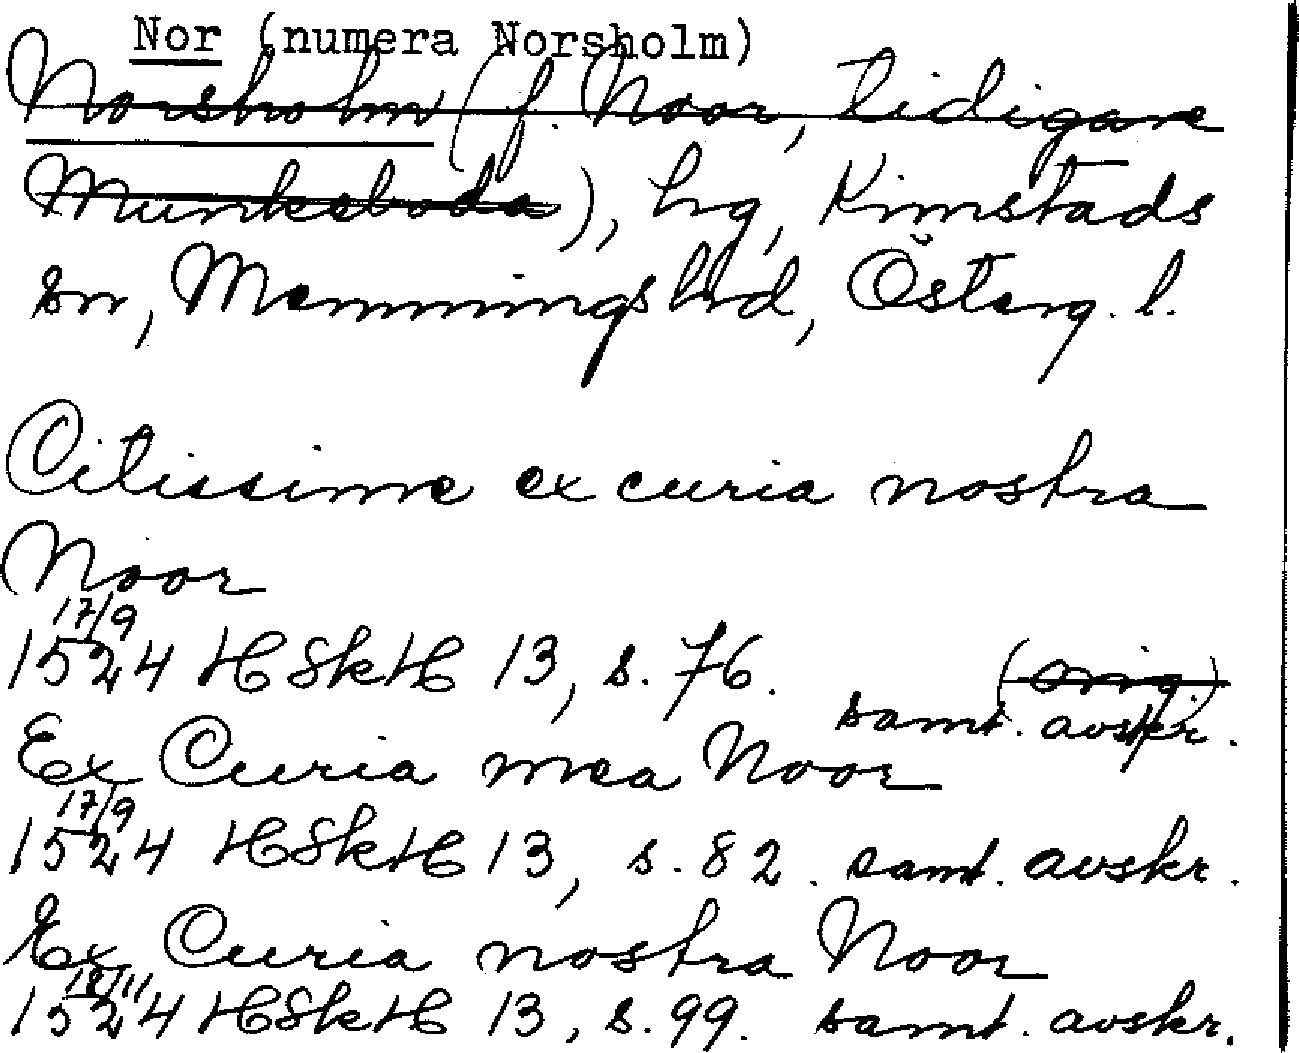 Nor (numera Norsholm)
Norsholm (f. Noor, tidigare
Munkeboda), hg, Kimstads
sn, Memmings hd, Österg. l.
Citissime ex curia nostra
Noor
17/9
1524 HSkH 13, s. 76. (orig.)
samt. avskr.
Ex Curia mea Noor
17/9
1524 HSkH 13, s. 82. samt. avskr.
Ex Curia nostra Noor
18/11
1524 HSkH 13, s. 99. samt. avskr.